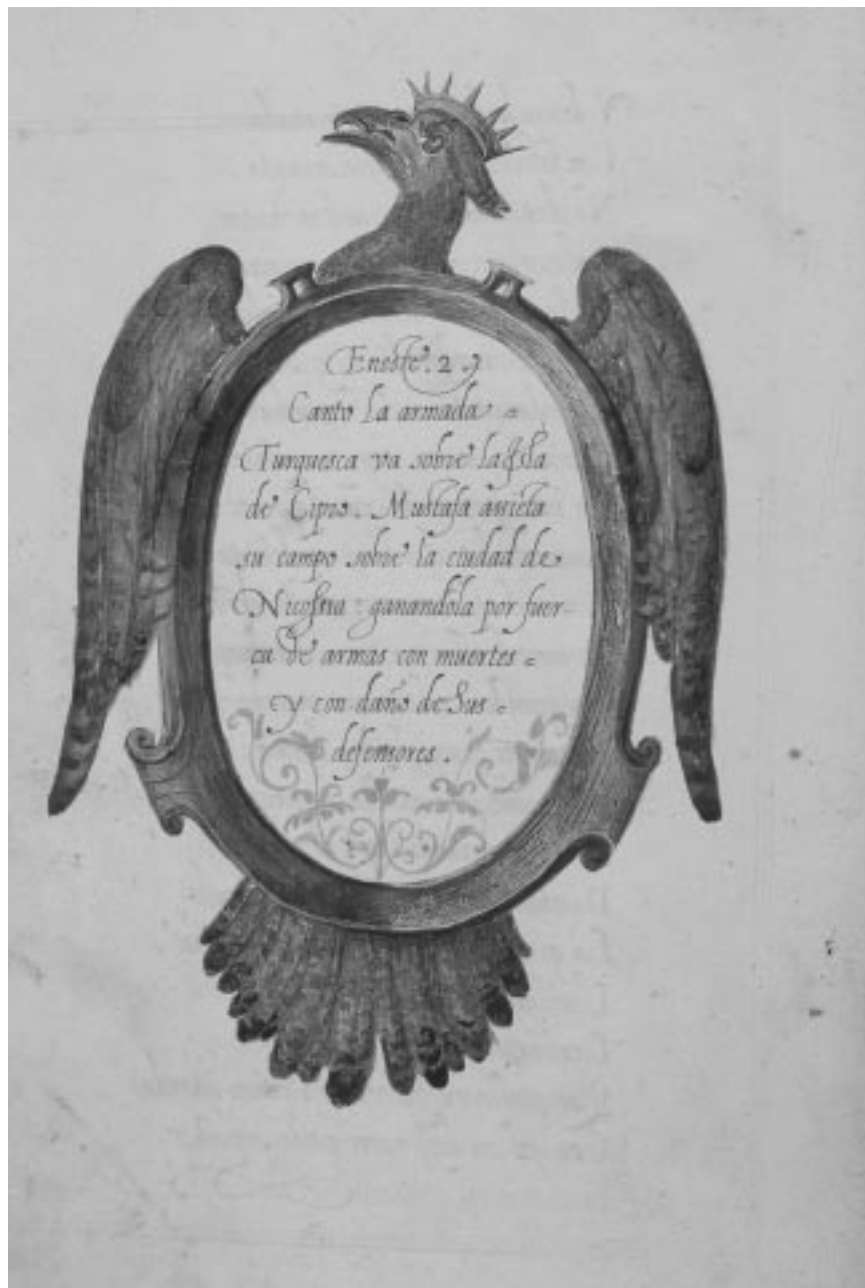 Eneste. 2.º
Canto la armada =
Turquesca va sobre la Isla
de Cipro. Mustafa assieta
su campo sobre la ciudad de
Nicossia ganandola por fuer-
ça de armas con muertes =
y con daño de Sus =
defensores.